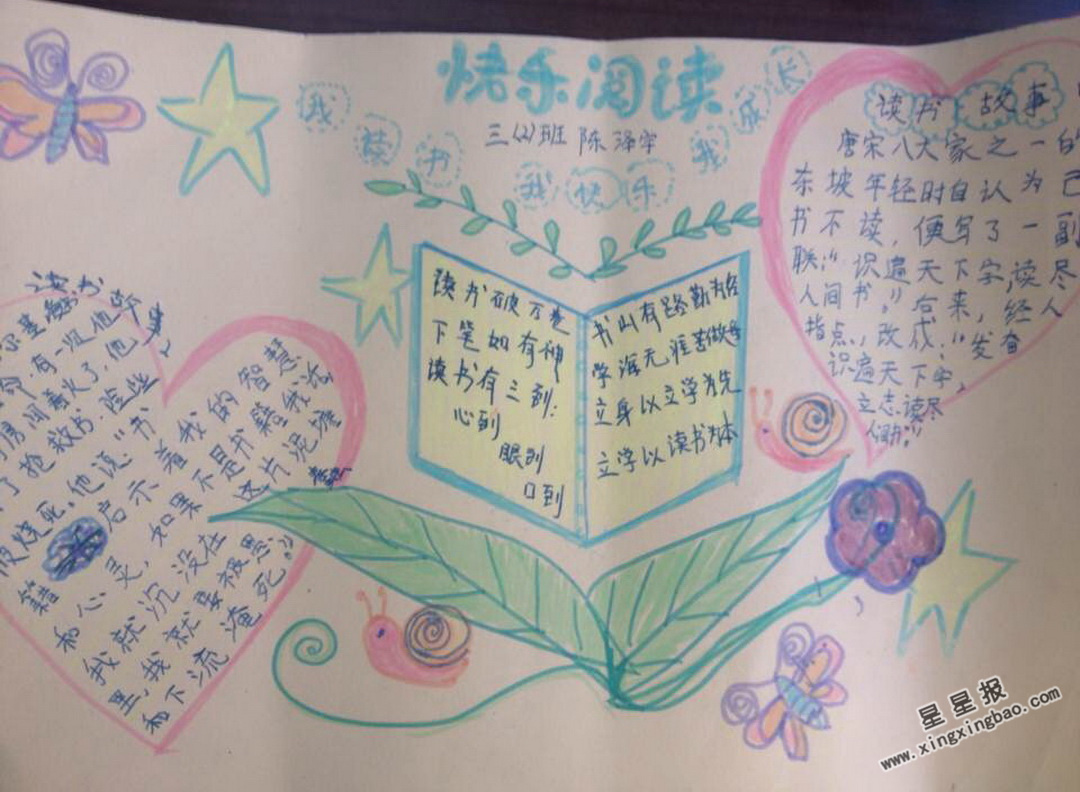 快乐阅读
三(2)班 陈泽宇
我读书 我快乐 我成长
读书故事
唐宋八大家之一的
东坡年轻时自认为已
书不读,便写了一副
联:“识遍天下字,读尽
人间书”后来,经人
指点,改成:“发奋
识遍天下字,
立志读尽
人间书”
读书破万卷
下笔如有神
读书有三到:
心到
眼到
口到
书山有路勤为径
学海无涯苦做舟
立身以立学为先
立学以读书为本
读书故事
命,有一次他
房间着火了,他
了抢救书,险些
被烧死,他说“书
籍启示着我的智慧
和心灵,如果不是书籍我沿
我就沉没在这片泥塘
里,我就要被愚
和下流淹死。”
星星报
www.xingxingbao.com